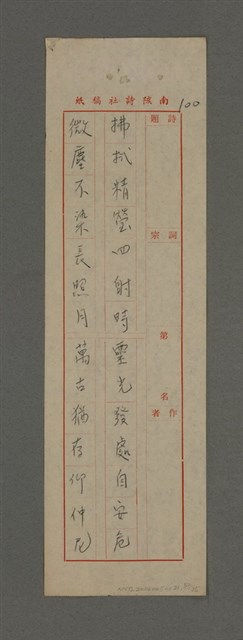 南陔詩社稿紙
100
詩題
詞宗
第 名
作者
拂拭精瑩四射時靈光發處自安危
微塵不染長照月萬古猶存仰仲尼